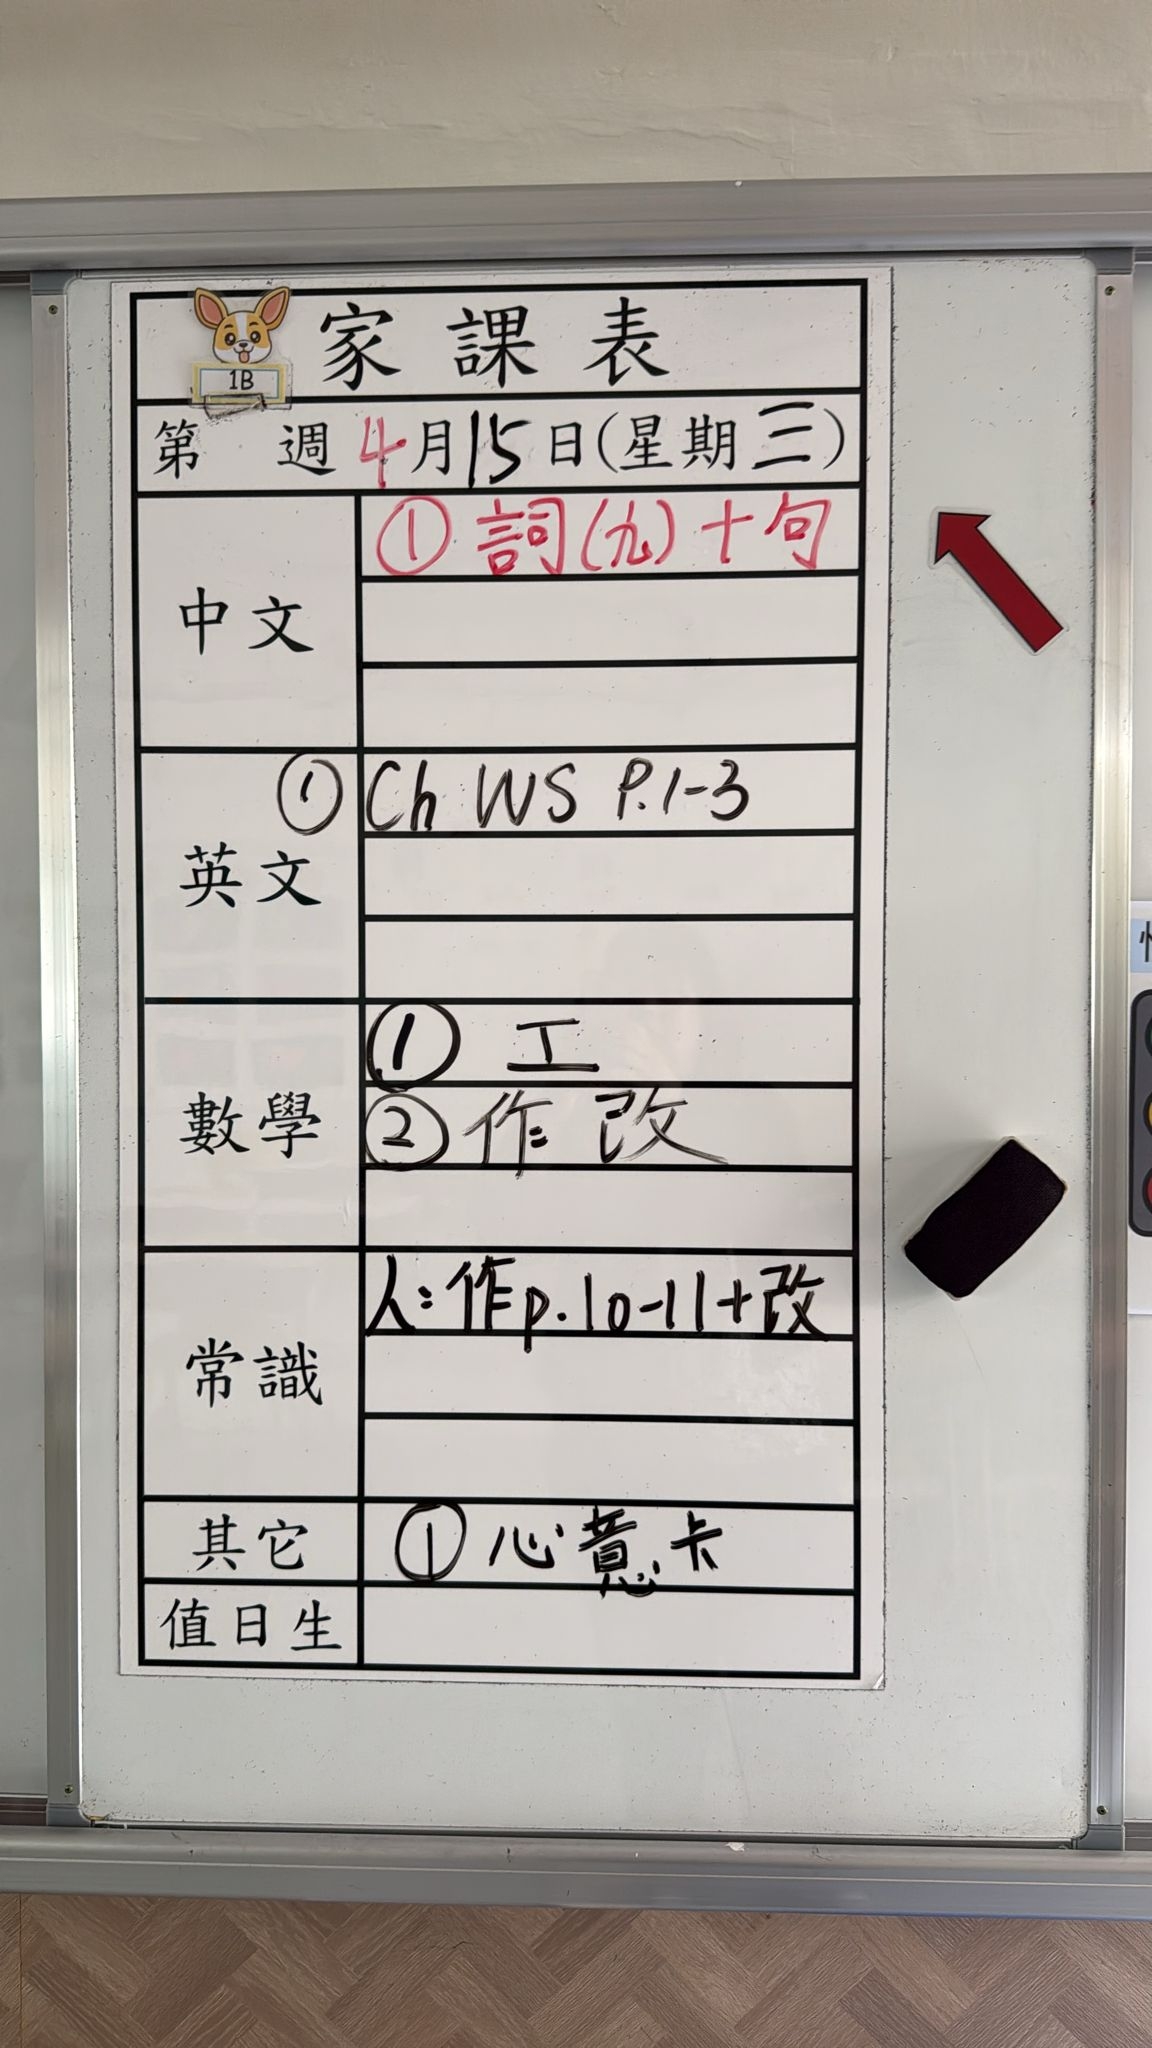 家課表
1B
第 週 4月15日(星期三)
中文
① 詞(九)十句
英文
① Ch WS P.1-3
數學
① 工
② 作改
常識
人:作p.10-11+改
其它
① 心意卡
值日生